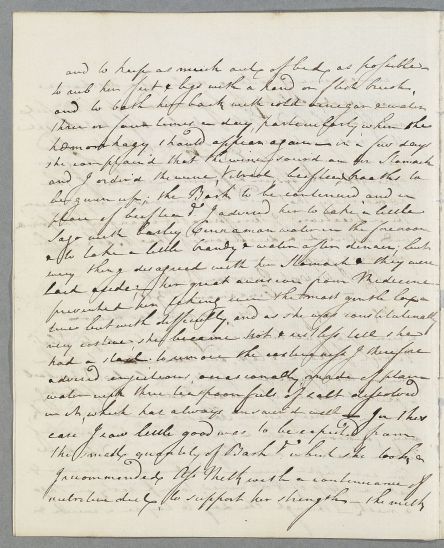 and to keep as much out of bed as possible
to rub her feet & legs with a hand or flesh brush,
and to bath her back with cold vinegar & water
three or four times a day, particularly when the
hemorrhagy should appear again — in a few days
she complain'd that the wine sour'd on her Stomach
and I order'd the wine, & beef tea to
be given up, the Bark to be continued and in
place of beef tea I advised her to take a little
Sago with barley water in the forenoon
& to take a little brandy & water after dinner; but
every thing disagreed with her Stomach & they were
laid aside; her great aversion from Medicine
prevented her taking the most gentle laxa
tives but with difficulty, and as she was constitutionally
very costive she became hot & restless till she
had a stool to remove the costiveness I therefore
advised injections occasionally, made of plain
water with three teaspoonfuls of salt dissolved
in it, which has always answered well — In this
case I saw little good was to be expected from
the small quantity of Bark which she took, &
I recommended Ass Milk with a continuance of
nutritive diet, to support her strength — the milk